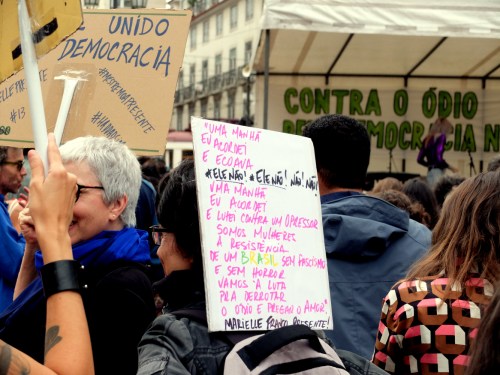 UNIDO
DEMOCRACIA
#MOREDAPRESENTE
#13
CONTRA O ÓDIO
DEMOCRACIA N
"UMA MANHÃ
EU ACORDEI
E ECOAVA
#ELE NÃO! #ELE NÃO! NÃO! NÃO!
UMA MANHÃ
EU ACORDEI
E LUTEI CONTRA UM OPRESSOR
SOMOS MULHERES
A RESISTÊNCIA
DE UM BRASIL SEM FASCISMO
E SEM HORROR
VAMOS À LUTA
PRA DERROTAR
O ÓDIO E PREGAR O AMOR"
MARIELLE FRANCO PRESENTE!